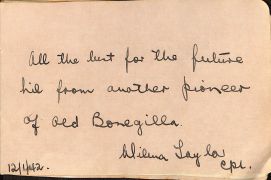 All the best for the future
hid from another pioneer
of old Bonegilla.
Wilma Taylor
Cpl.
12/1/42.